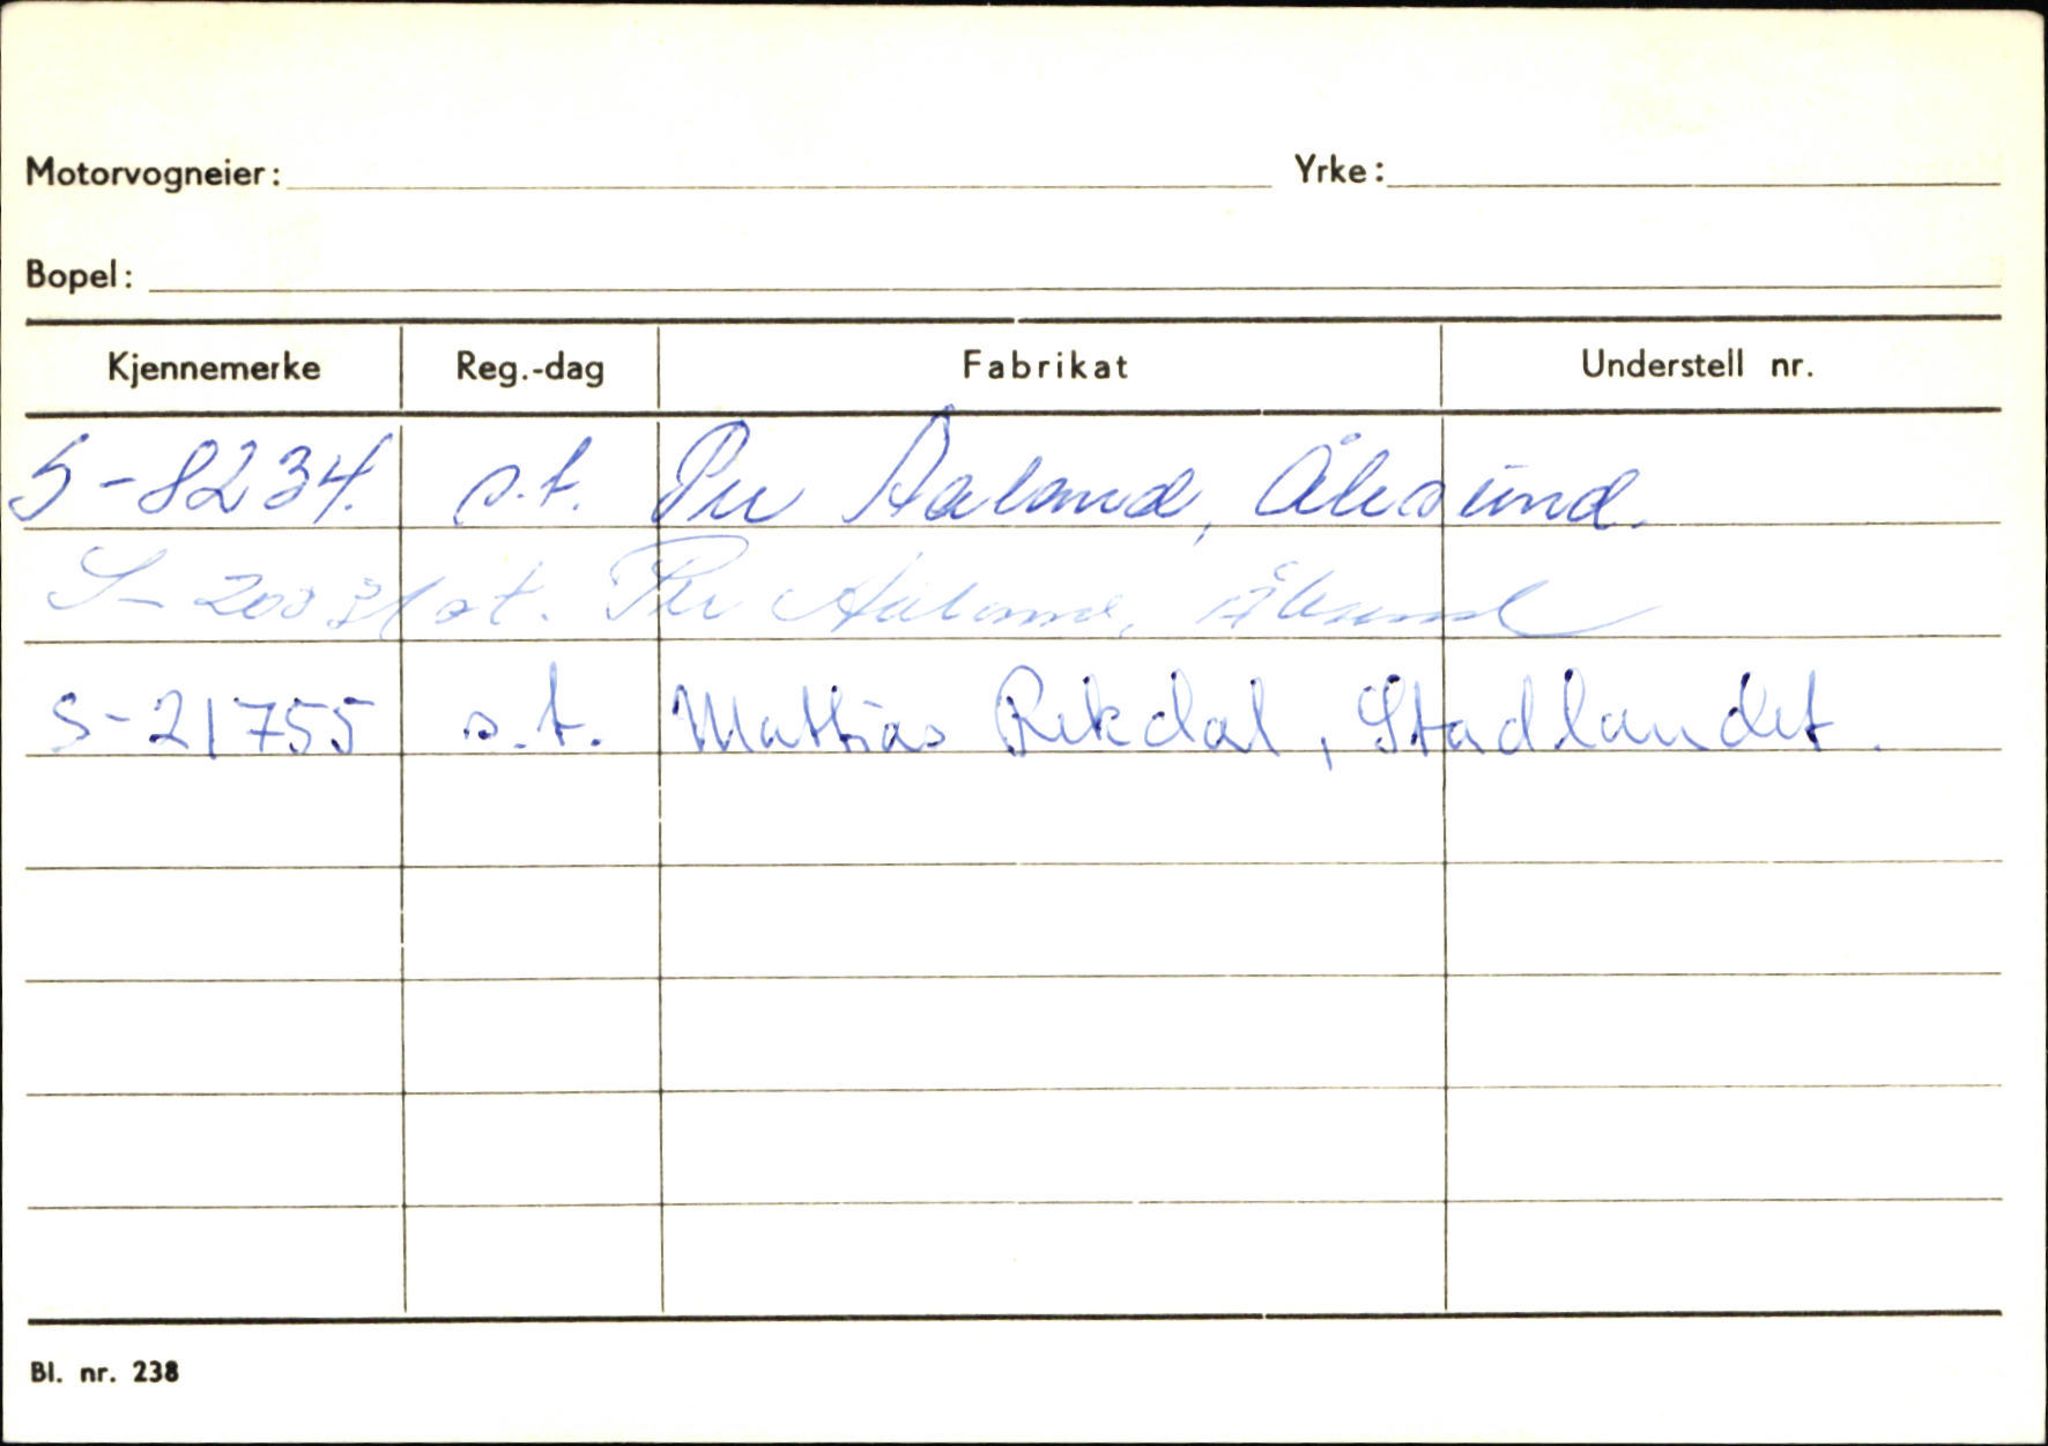 Motorvogneier: Yrke:
Bopel:
Kjennemerke Reg.-dag Fabrikat Understell nr.
S-8234. s.t. Per Aaland, Ålesund.
S-20031 st. Per Aaland, Ålesund
S-21755 s.t. Mathias Rekdal, Stadlandet.
Bl. nr. 238